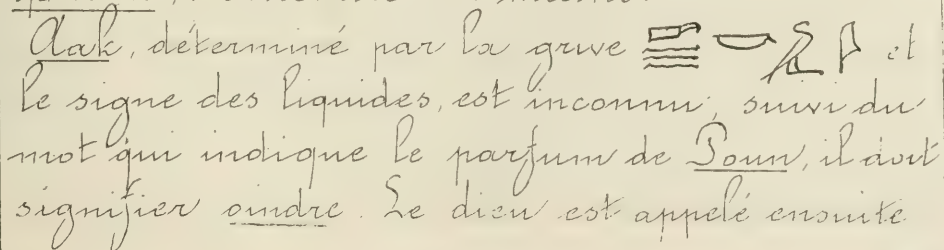 Aak, déterminé par la grue et
le signe des liquides, est inconnu; suivi du
mot qui indique le parfum de Poun, il doit
signifier oindre. Le dieu est appelé ensuite